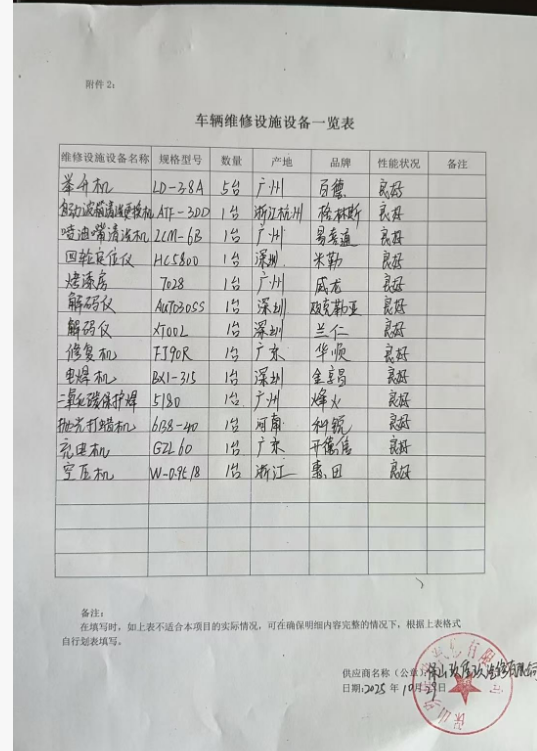 附件 2:
车辆维修设施设备一览表
维修设施设备名称 规格型号 数量 产地 品牌 性能状况 备注
举升机 LD-38A 5台 广州 百德 良好
自动波箱清洗更换机 ATF-3DD 1台 浙江杭州 格林斯 良好
喷油嘴清洗机 LCM-6B 1台 广州 易圣通 良好
四轮定位仪 HC5800 1台 深圳 米勒 良好
烤漆房 7028 1台 广州 威龙 良好
解码仪 1台 深圳 欧克勒亚 良好
解码仪 XT00L 1台 深圳 兰仁 良好
修复机 FI90R 1台 广东 华顺 良好
电焊机 BX1-315 1台 深圳 金 良好
二氧化碳保护焊 5180 1台 广州 烽火 良好
抛光打蜡机 6B8-40 1台 河南 利锐 良好
充电机 GZL60 1台 广东 开德 良好
空压机 W-0.9E/8 1台 浙江 田 良好
备注:
在填写时,如上表不适合本项目的实际情况,可在确保明细内容完整的情况下,根据上表格式
自行划表填写。
供应商名称(公章): 保山 汽修有限公司
日期:2025 年 10月 日